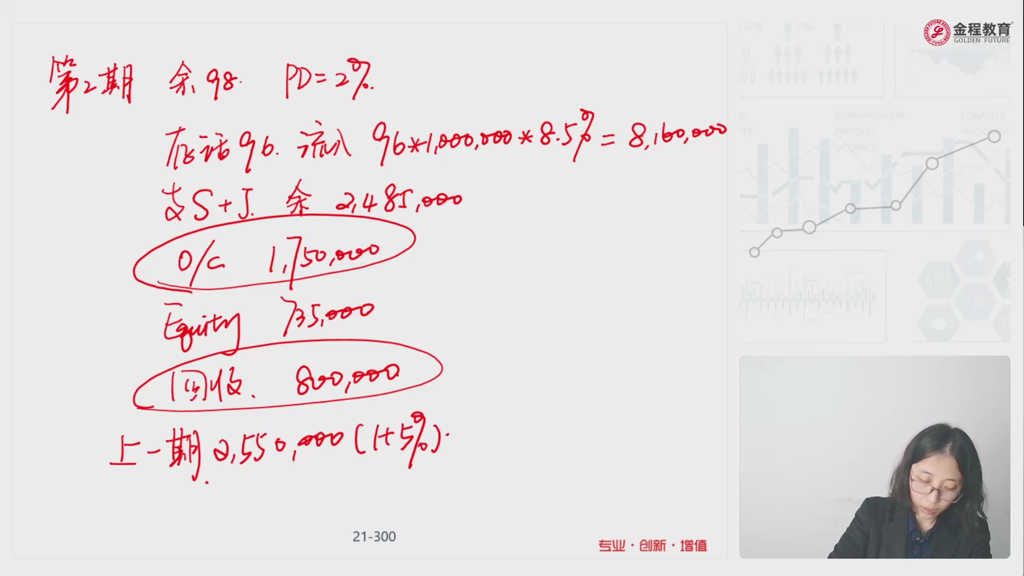 金程教育
GOLDEN FUTURE
第2期 余98. PD=2%.
存活96. 流入 96*1,000,000*8.5%=8,160,000
支S+J. 余 2,485,000
O/C 1,750,000
Equity 735,000
回收. 800,000
上一期 2,550,000(1+5%).
21-300
专业·创新·增值